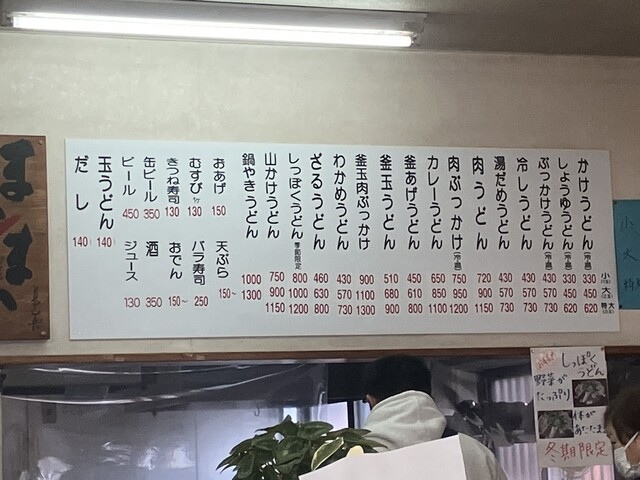 小 大 特大
かけうどん(冷・温) 330 450 620
しょうゆうどん(冷・温) 330 450 620
ぶっかけうどん(冷・温) 430 570 730
冷しうどん 430 570 730
湯だめうどん 430 570 730
肉うどん 720 900 1150
肉ぶっかけ(冷・温) 750 950 1200
カレーうどん 650 850 1100
釜あげうどん 450 610 800
釜玉うどん 510 680 900
釜玉肉ぶっかけ 900 1100 1300
わかめうどん 430 570 730
ざるうどん 460 630 800
しっぽくうどん 季節限定 800 1000 1200
山かけうどん 750 900 1150
鍋やきうどん 1000 1300
おあげ 150
天ぷら 150～
むすび 1ケ 130
バラ寿司 250
きつね寿司 130
おでん 150～
缶ビール 350
酒 350
ビール 450
ジュース 130
玉うどん 140
だし 140
しっぽく
うどん
野菜が
たっぷり
体が
あたたま
冬期限定